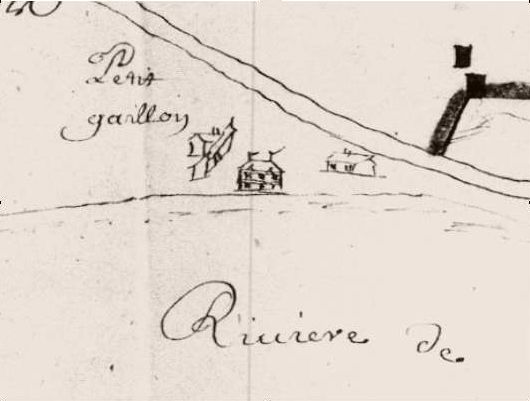 Petit
gaillon
Riviere de